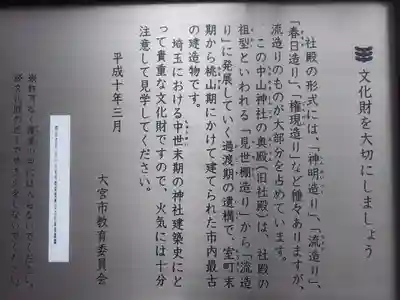 文化財を大切にしましょう
社殿の形式には、「神明造り」、「流造り」、
「春日造り」、「権現造り」など種々ありますが、
流造りのものが大部分を占めています。
この中山神社の奥殿(旧社殿)は、社殿の
祖型といわれる「見世棚造り」から「流造
り」に発展していく過渡期の遺構で、室町末
期から桃山期にかけて建てられた市内最古
の建造物です。
埼玉における中世末期の神社建築史にと
って貴重な文化財ですので、火気には十分
注意して見学してください。
平成十年三月
大宮市教育委員会